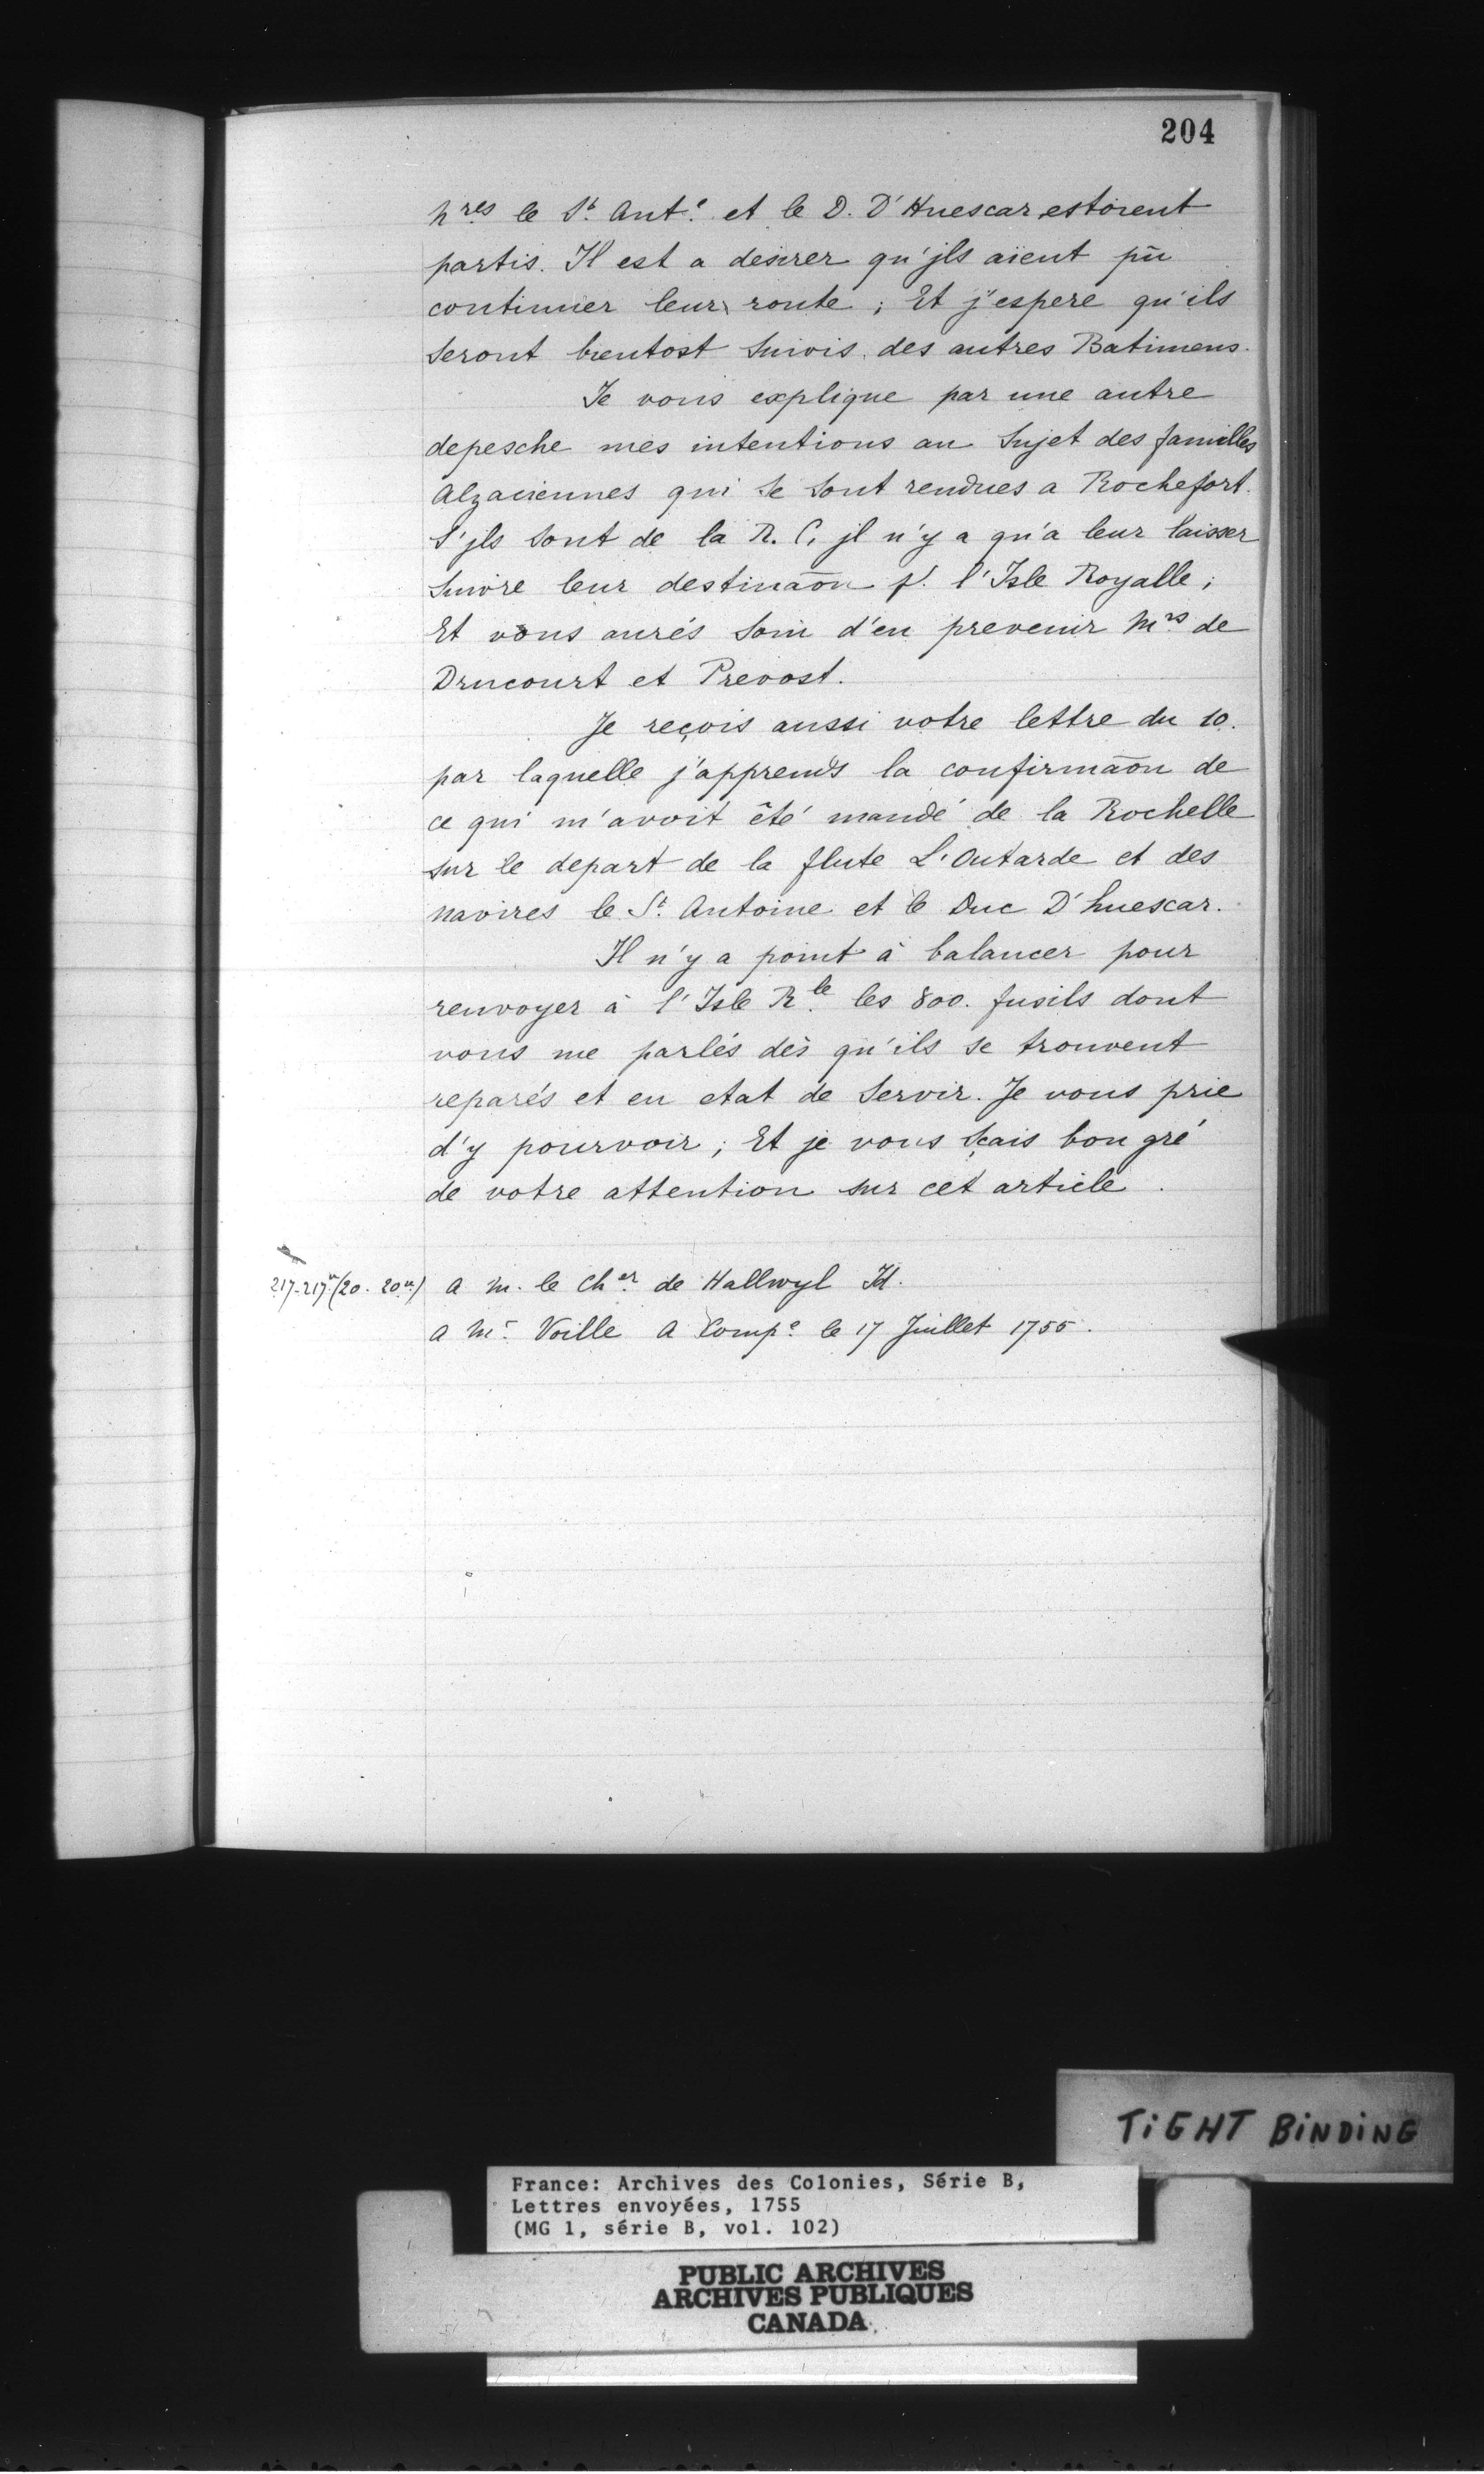 204
nres le St. Ant.e et le D. D'Huescar estoient
partis. Il est a desirer qu'jls aïent pû
continuer leur route ; Et j'espere qu'ils
seront bientost suivis des autres Batimens.
Je vous explique par une autre
depesche mes intentions au sujet des familles
alzaciennes qui se sont rendues a Rochefort.
S'jls sont de la R. C. jl n'y a qu'a leur laisser
suivre leur destinaōn p.r l'Isle Royalle ;
Et vous aurés soin d'en prevenir Mrs de
Drucourt et Prevost.
Je reçois aussi votre lettre du 10.
par laquelle j'apprends la confirmaōn de
ce qui m'avoit êté mandé de la Rochelle
sur le depart de la flute L'Outarde et des
navires le St. Antoine et le Duc D'huescar.
Il n'y a point à balancer pour
renvoyer à l'Isle R.le les 800. fusils dont
vous me parlés dès qu'ils se trouvent
reparés et en etat de servir. Je vous prie
d'y pourvoir ; Et je vous sçais bon gré
de votre attention sur cet article.
217-217v (20. 20v.) a M. le Cher. de Hallwyl Id.
a Mr. Voille a Comp.e le 17 Juillet 1755.
TIGHT BINDING
France: Archives des Colonies, Série B,
Lettres envoyées, 1755
(MG 1, série B, vol. 102)
PUBLIC ARCHIVES
ARCHIVES PUBLIQUES
CANADA